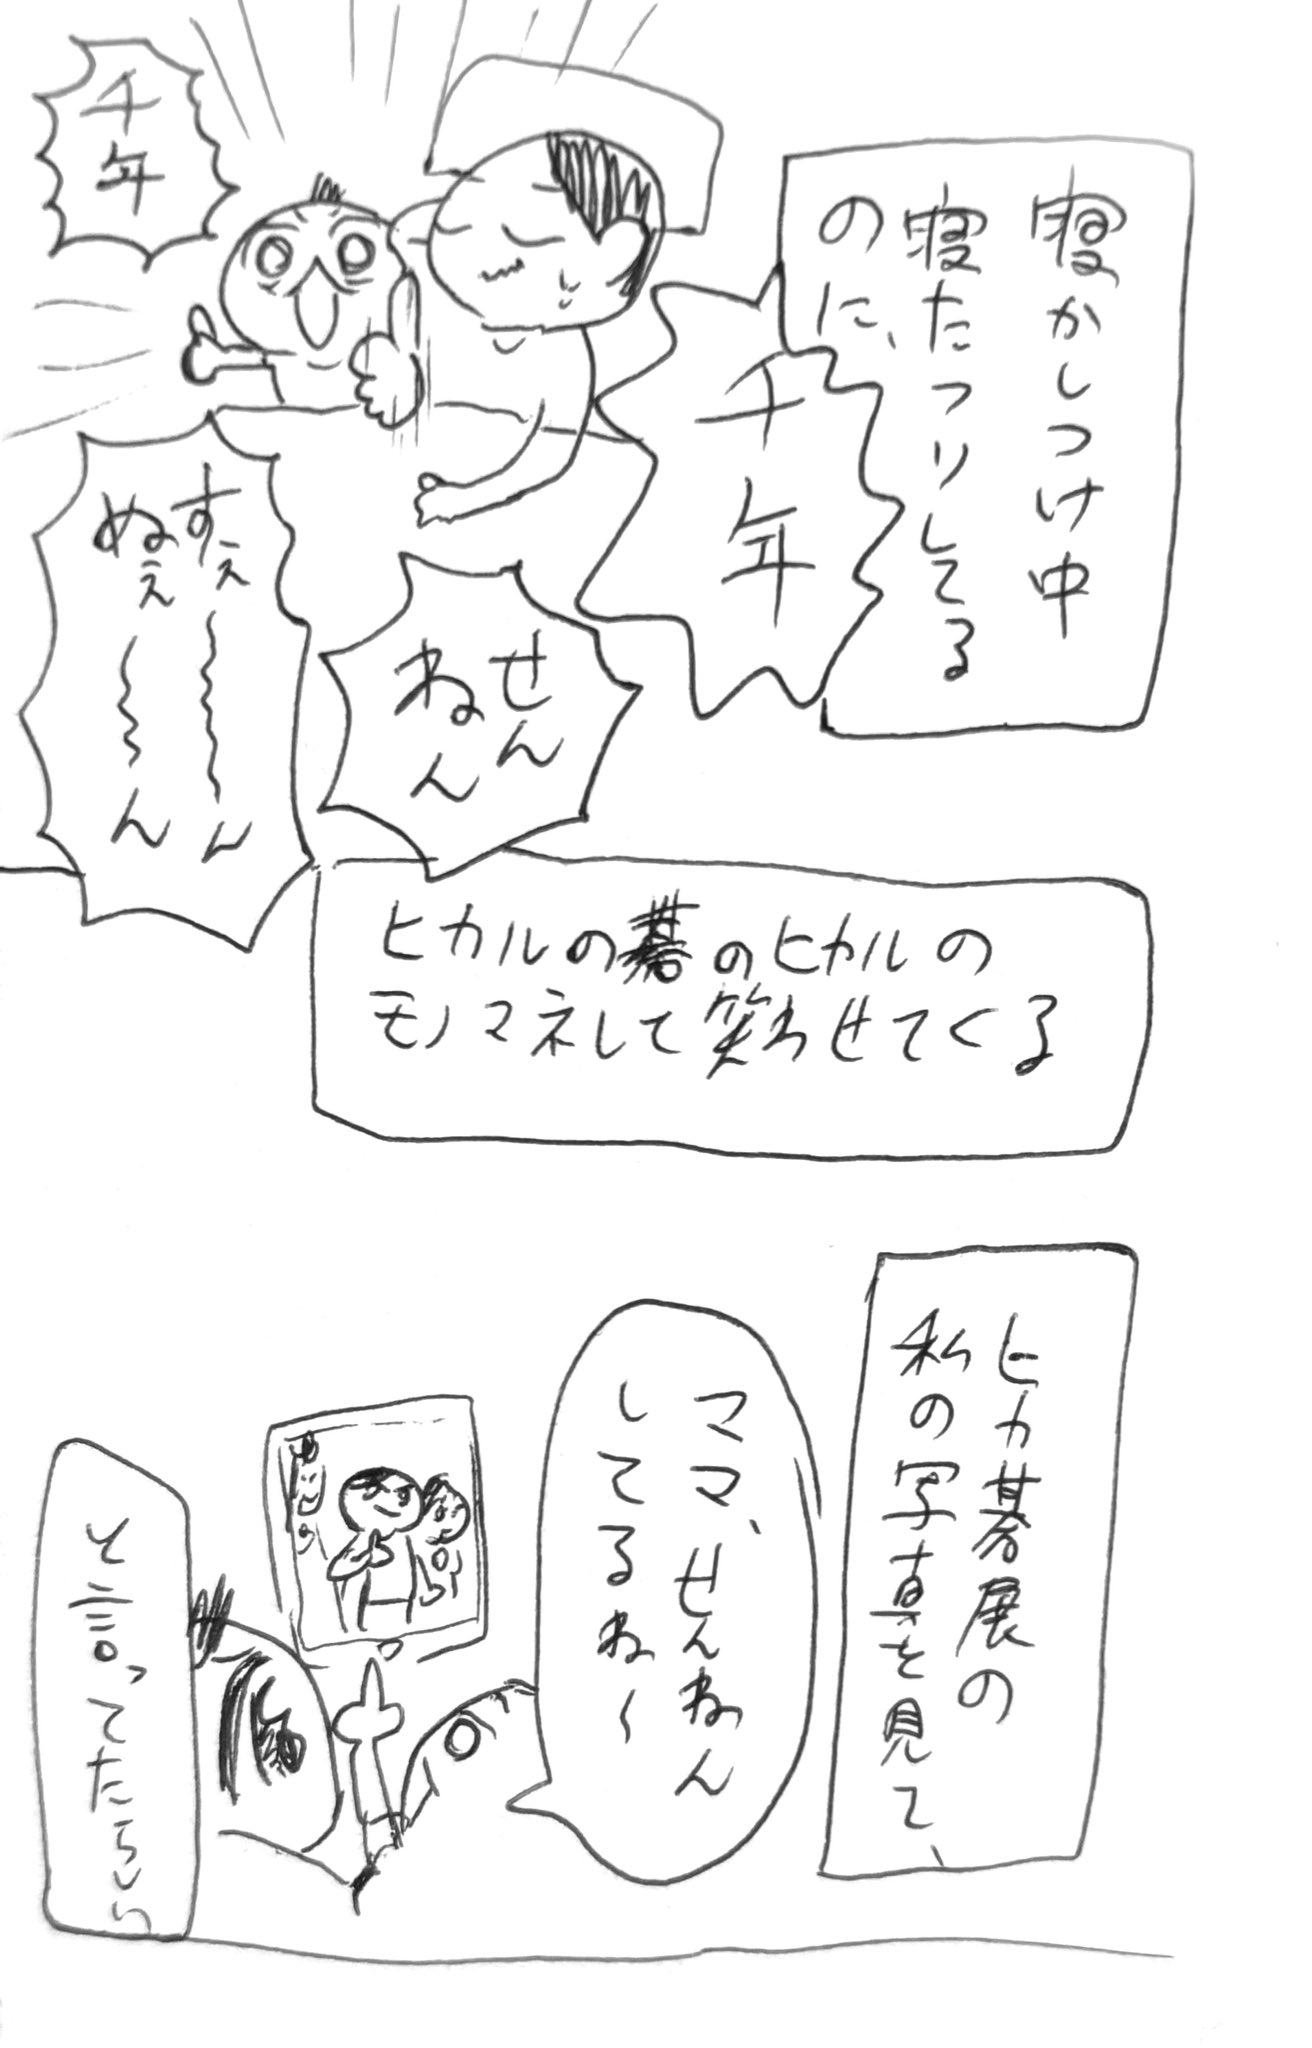 寝かしつけ中
寝たフリしてる
のに、
千年
千年
せん
ねん
すぇ〜〜ん
ぬぇ〜〜ん
ヒカルの碁のヒカルの
モノマネして笑わせてくる
ヒカ碁展の
私の写真を見て、
ママ、せんねん
してるね〜
と言ってたらしい